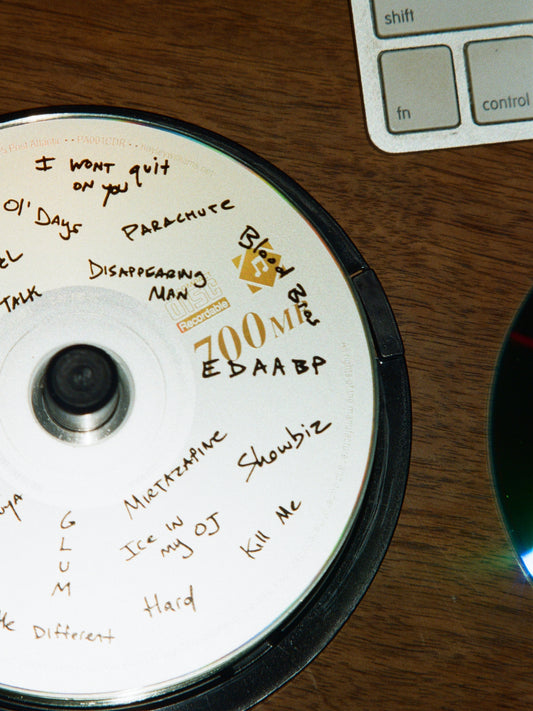 shift
fn
control
Post Atlantic
I WONT quit
ON you
Ol' Days
PARACHUTE
Blood Bros
DISAPPEARING
MAN
TALK
Recordable
700 M
EDAABP
MIRTAZAPINE
Showbiz
G
L
U
M
ICE IN
my OJ
Kill Me
Hard
Different